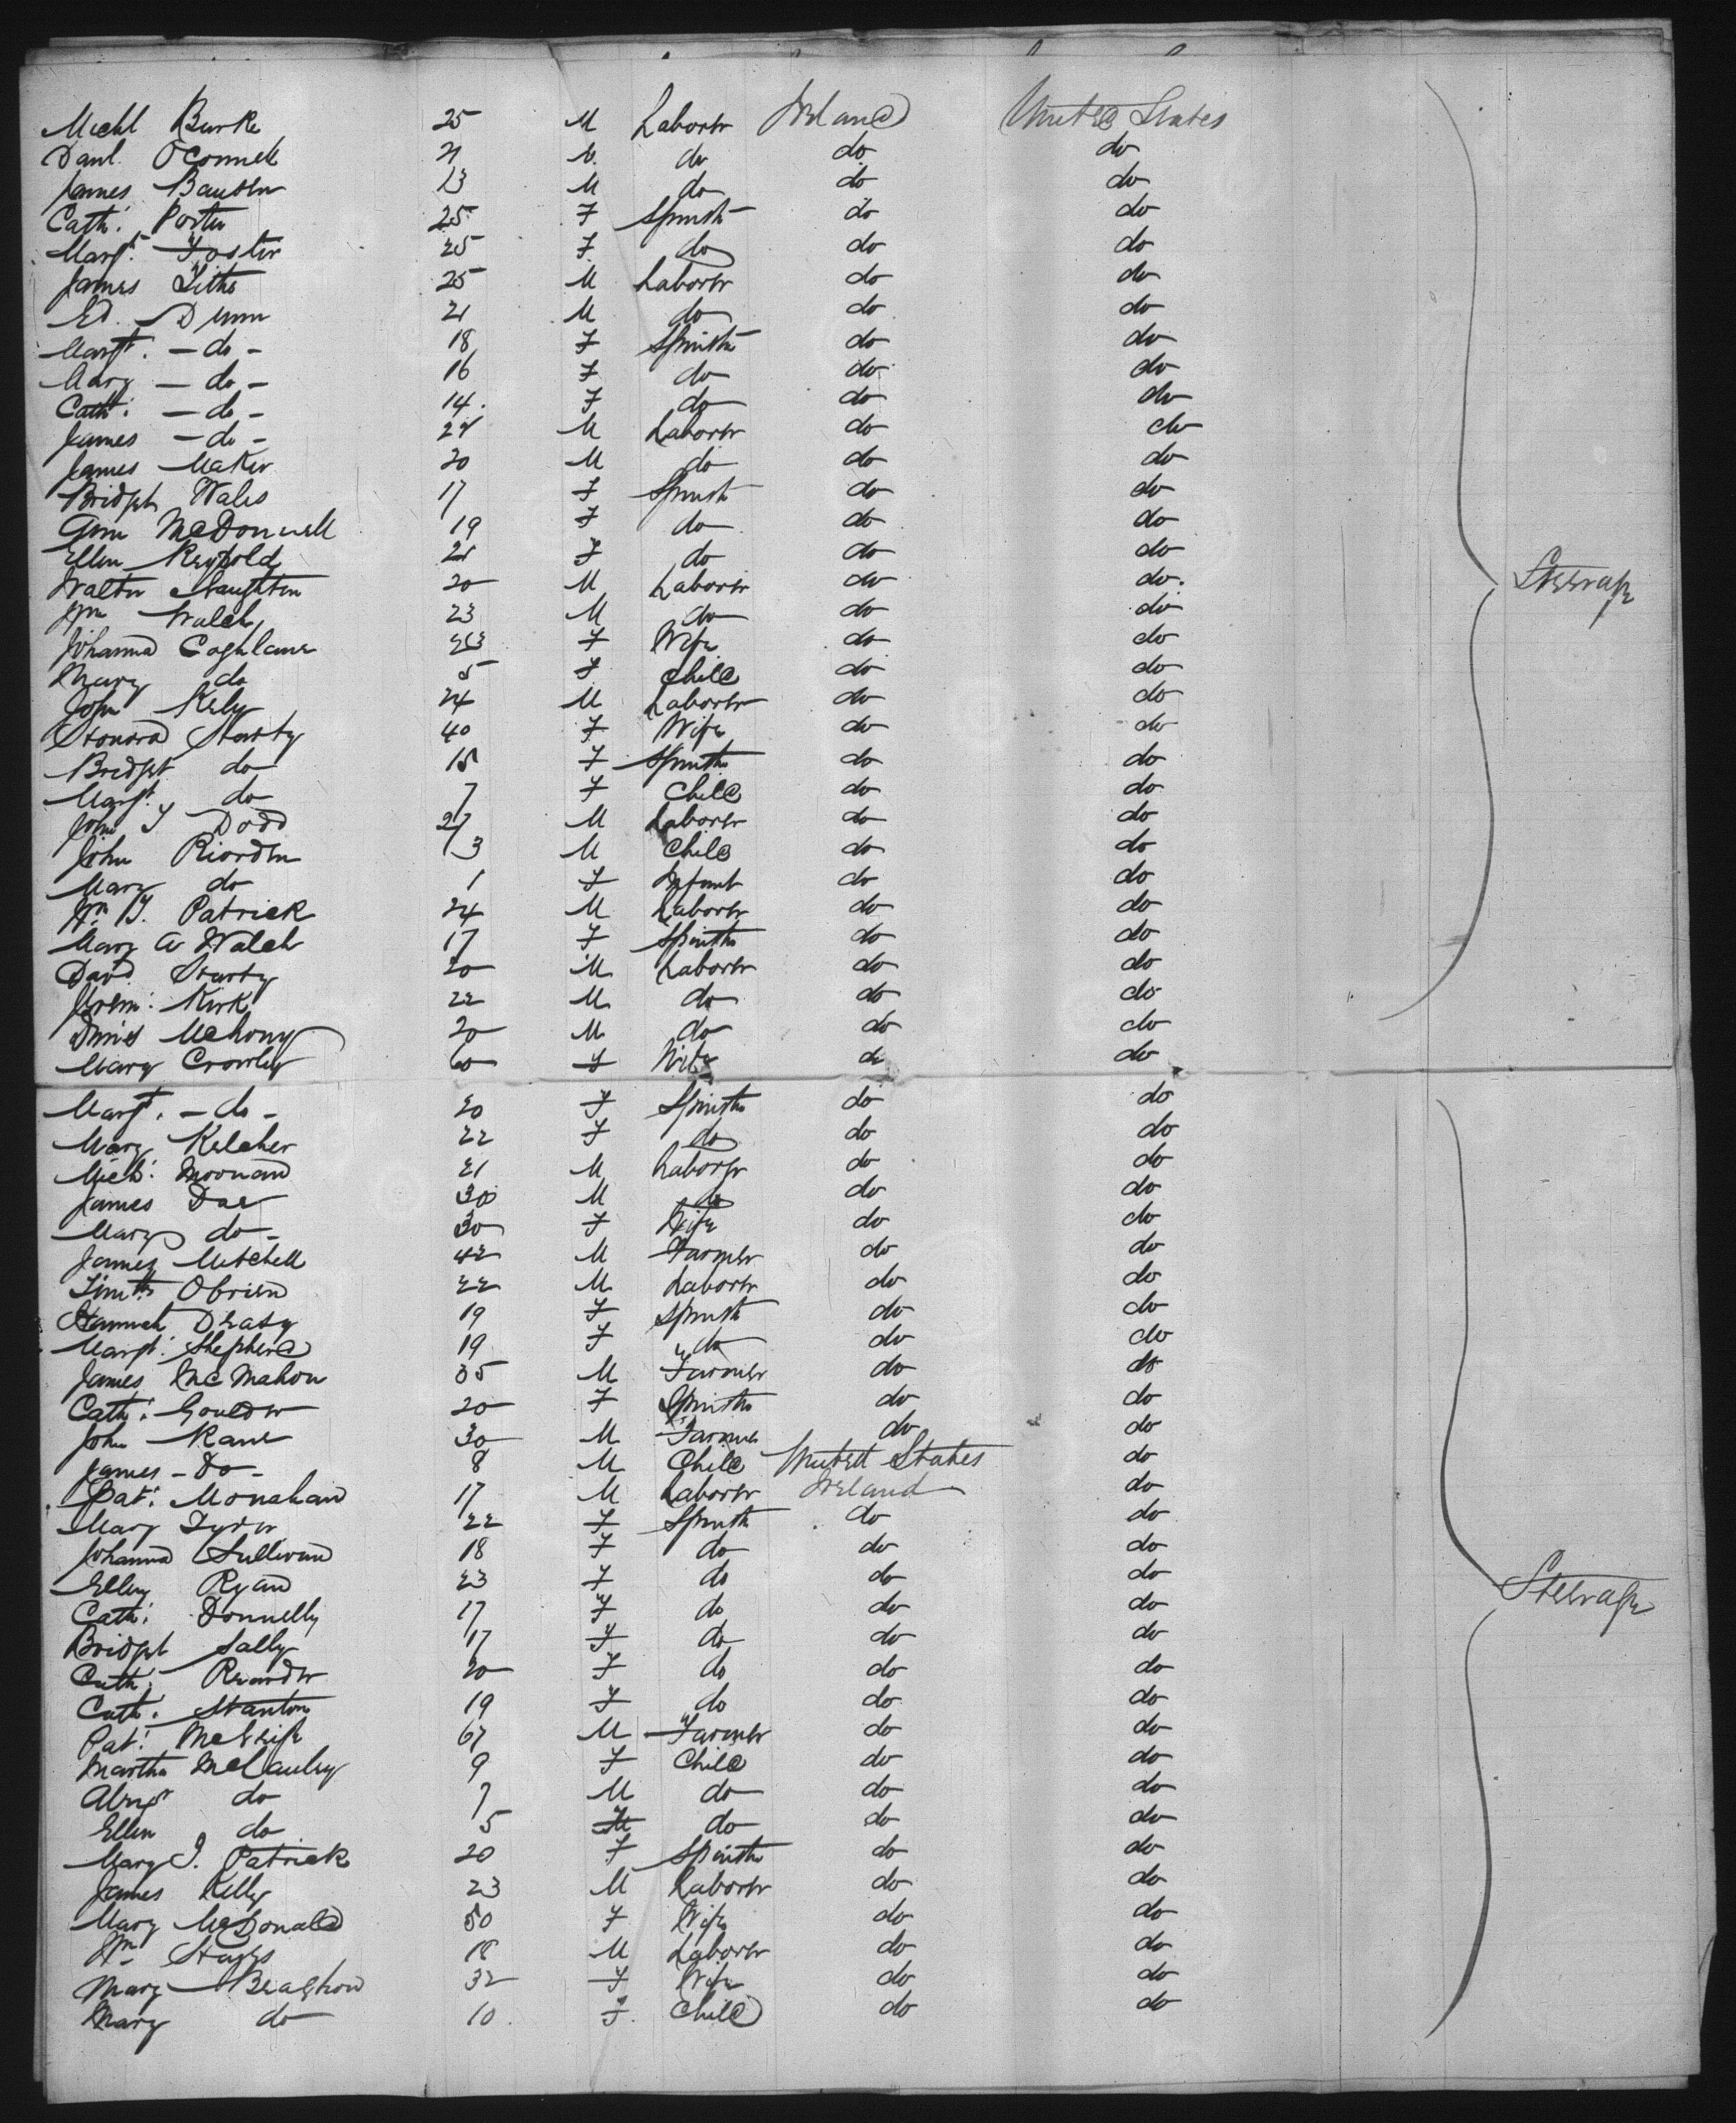 Michl Burke 25 M Laborer Ireland United States
Danl. OConnell 21 M. do do do
James Bauden 13 M do do do
Cath: Porter 25 F Spinstr do do
Margt. Foster 25 F. do do do
James Titho 25 M Laborer do do
Ed. Dunn 21 M do do do
Margt. — do — 18 F Spinstr do do
Mary — do — 16 F do do do
Cath: — do — 14. F do do do
James — do — 24 M Laborer do do
James Maker 20 M do do do
Bridget Wales 17 F Spinstr do do
Ann McDonnell 19 F do do do
Ellen 21 F do do do
Walter Naughton 20 M Laborer do do. Steerage
Wm Walch 23 M do do do
Johanna Coghlane F Wife do do
Mary do 5 F Child do do
John Kely 24 M Laborer do do
Honora Harty 40 F Wife do do
Bridget do 15 F Spinstr do do
Margt. do 7 F Child do do
John J Dodd 27 M Laborer do do
John Riorden 3 M Child do do
Mary do 1 F Infant do do
Wm J. Patrick 24 M Laborer do do
Mary A Walch 17 F Spinstr do do
David Harty 20 M Laborer do do
Jerem: Kirk 22 M do do do
Dinis Mahony 20 M do do do
Mary Crowley 60 F Wife do do
Margt. — do — 20 F Spinstr do do
Mary Kelcher 22 F do do do
Mich: Moonan 21 M Laborer do do
James Dae 30 M do do do
Mary do — 30 F Wife do do
James Mitchell 42 M Farmer do do
Timth OBrien 22 M Laborer do do
Hannah Deasy 19 F Spinstr do do
Margt. Shepherd 19 F do do do
James McMahon 35 M Farmer do do
Cath: Goulder 20 F Spinstr do do
John Kane 30 M Farmer do do
James — Do — 8 M Child United States do
Pat: Monahan 17 M Laborer Ireland do
Mary Tyder 22 F Spinstr do do
Johanna Sullivan 18 F do do do
Ellen Ryan 23 F do do do Steerage
Cath: Donnelly 17 F do do do
Bridget Sally 17 F do do do
Cath: 20 F do do do
Cath: Stanton 19 F do do do
Pat: 67 M Farmer do do
Martha McCauley 9 F Child do do
do 7 M do do do
Ellen do 5 do do do
Mary J. Patrick 20 F Spinstr do do
James Kelly 23 M Laborer do do
Mary McDonald 50 F Wife do do
Wm Hayes 18 M Laborer do do
Mary 32 F Wife do do
Mary do 10. F. Child do do